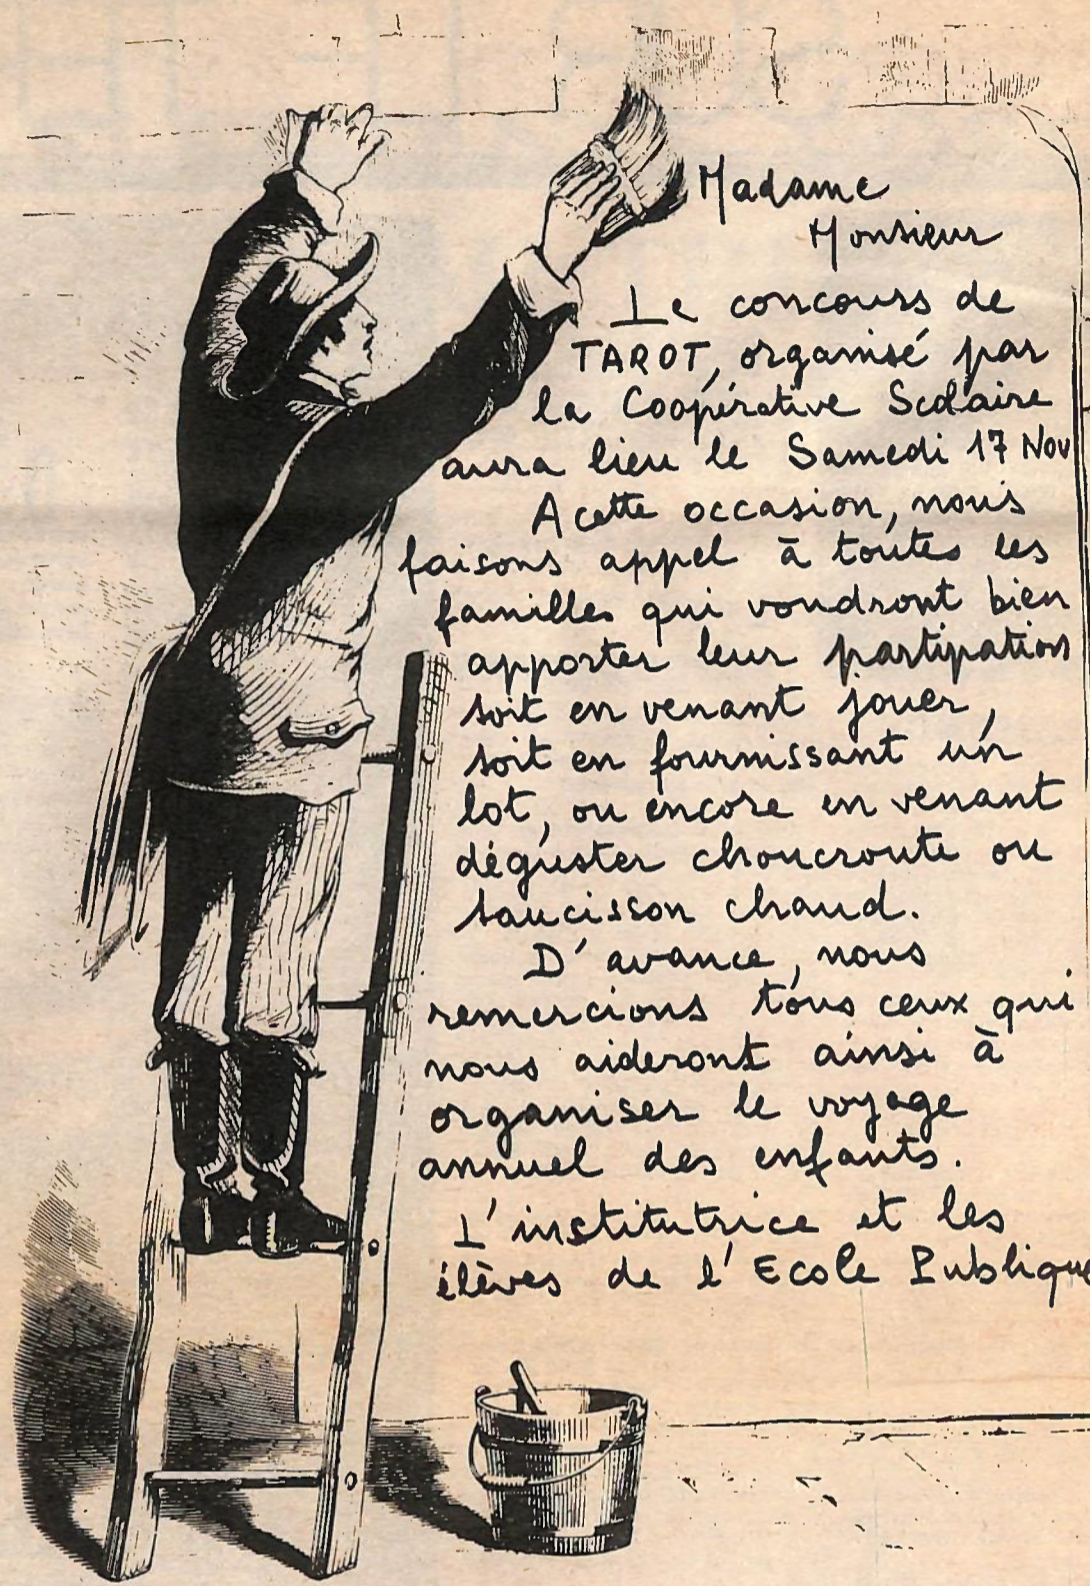 Madame
Monsieur
Le concours de
TAROT, organisé par
la Coopérative Scolaire
aura lieu le Samedi 17 Nov
A cette occasion, nous
faisons appel à toutes les
familles qui voudront bien
apporter leur partipation
soit en venant jouer,
soit en fournissant un
lot, ou encore en venant
déguster choucroute ou
saucisson chaud.
D'avance, nous
remercions tous ceux qui
nous aideront ainsi à
organiser le voyage
annuel des enfants.
L'institutrice et les
élèves de l'Ecole Publique